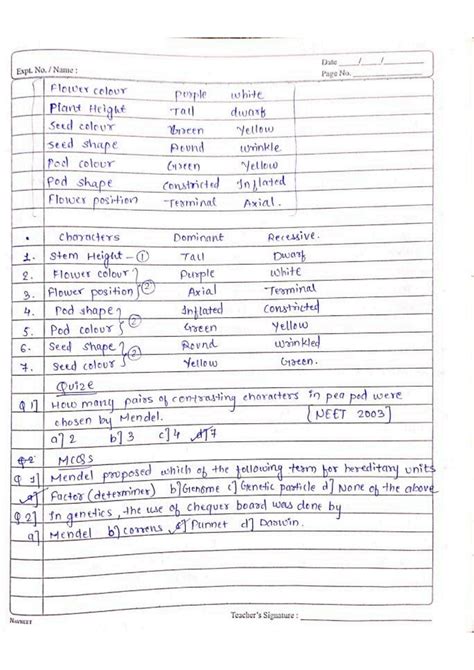 Date ___/___/___
Expt. No. / Name :
Page No.
Flower colour Purple white
Plant Height Tall dwarf
Seed colour Green Yellow
Seed shape Round wrinkle
Pod colour Green Yellow
Pod shape constricted Inflated
Flower position Terminal Axial.
• Characters Dominant Recessive.
1. Stem Height - ① Tall Dwarf
2. Flower colour } Purple white
3. Flower position } ② Axial Terminal
4. Pod shape } Inflated Constricted
5. Pod colour } ② Green Yellow
6. Seed shape } Round wrinkled
7. Seed colour } ② Yellow Green.
Quize
Q 1] How many pairs of contrasting characters in pea pod were
chosen by Mendel. [NEET 2003]
a] 2 b] 3 c] 4 d] 7
Q.2 MCQs
Q 1] Mendel proposed which of the following term for hereditary units
a] Factor (determiner) b] Genome c] Genetic particle d] None of the above
Q 2] In genetics, the use of chequer board was done by
a] Mendel b] correns c] Punnet d] Darwin.
Teacher's Signature :